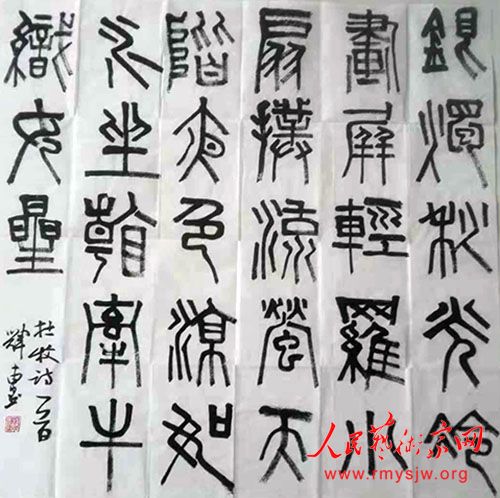 銀燭秋光冷
畫屏輕羅小
扇撲流螢天
階夜色涼如
水坐看牽牛
織女星
杜牧诗一首
人民藝術家网
www.rmysjw.org